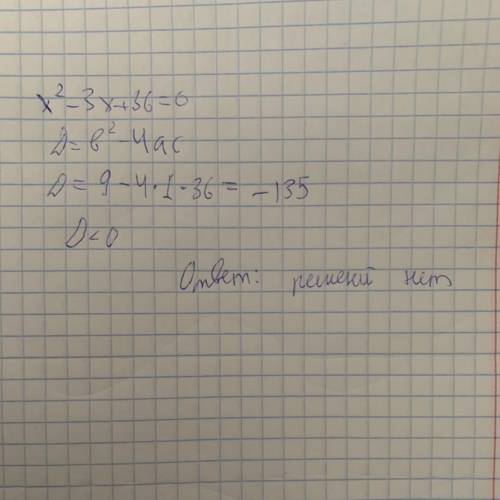 x²-3x+36=0
D=b²-4ac
D=9-4·1·36=-135
D<0
Ответ: решений нет